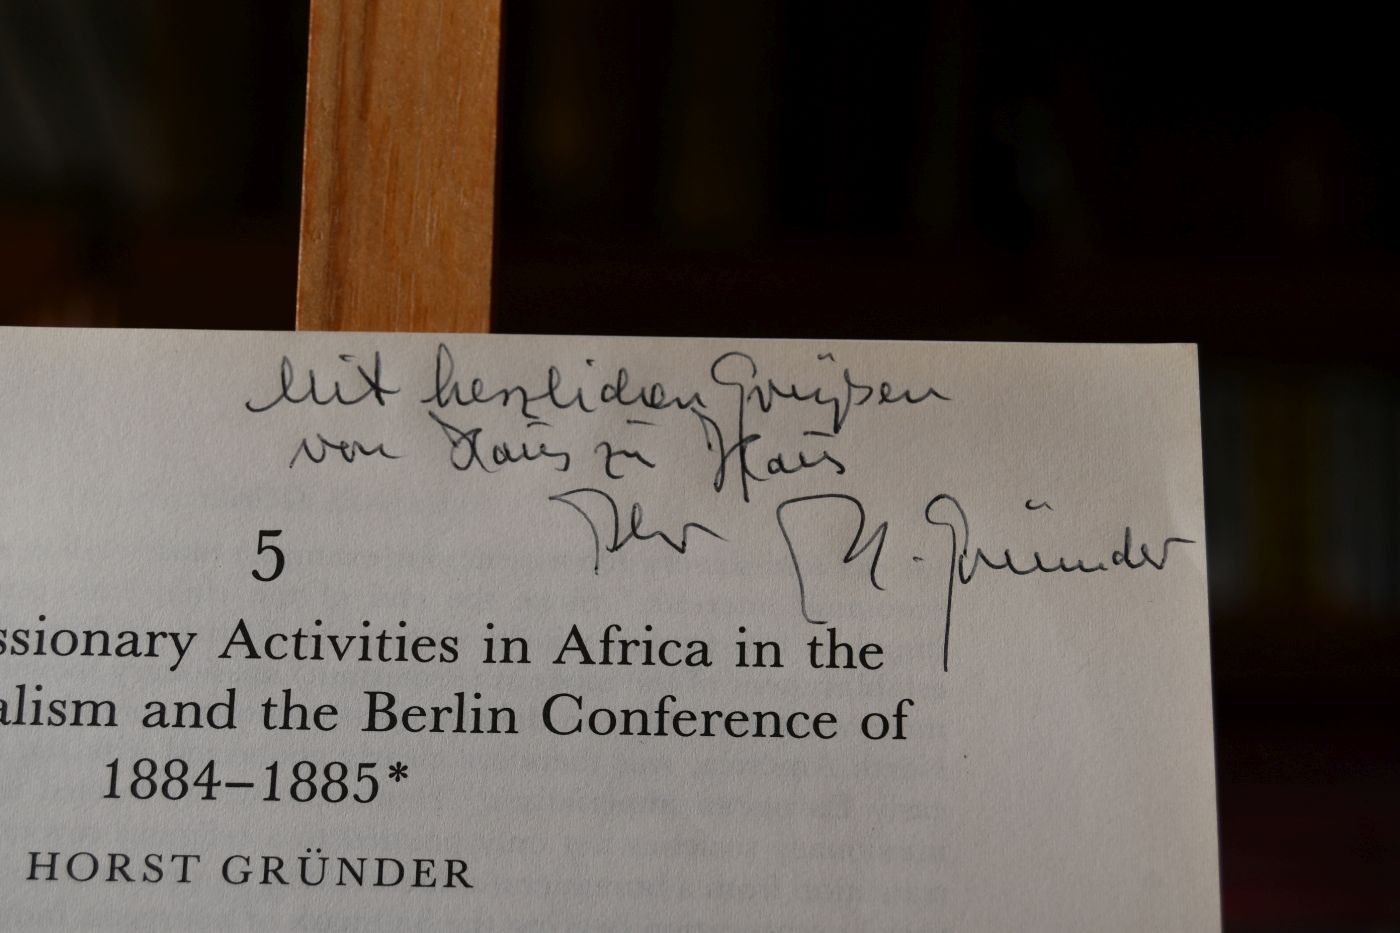 Mit herzlichen Grüßen
von Haus zu Haus
Ihr H. Gründer
5
ssionary Activities in Africa in the
alism and the Berlin Conference of
1884–1885*
HORST GRÜNDER